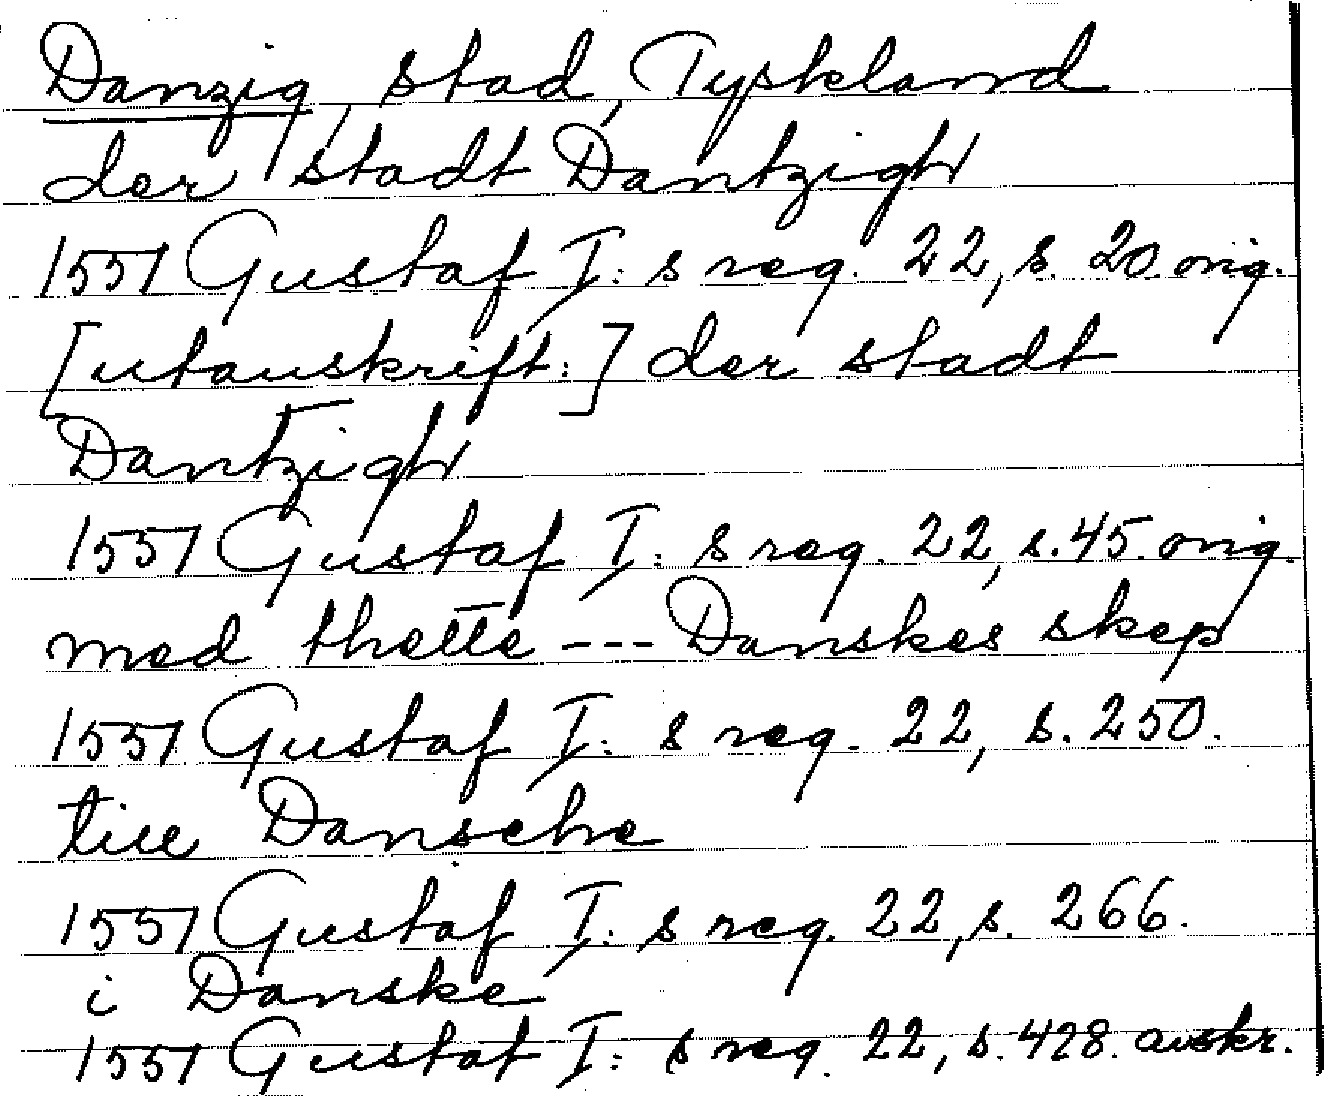 Danzig, stad, Tyskland
der Stadt Dantzigh
1551 Gustaf I:s reg. 22, s. 20 orig.
[utanskrift:] der stadt
Dantzigh
1551 Gustaf I:s reg. 22, s. 45. orig.
med thette --- Danskes skep
1551 Gustaf I:s reg. 22, s. 250.
till Dansche
1551 Gustaf I:s reg. 22, s. 266.
i Danske
1551 Gustaf I:s reg. 22, s. 428. avskr.